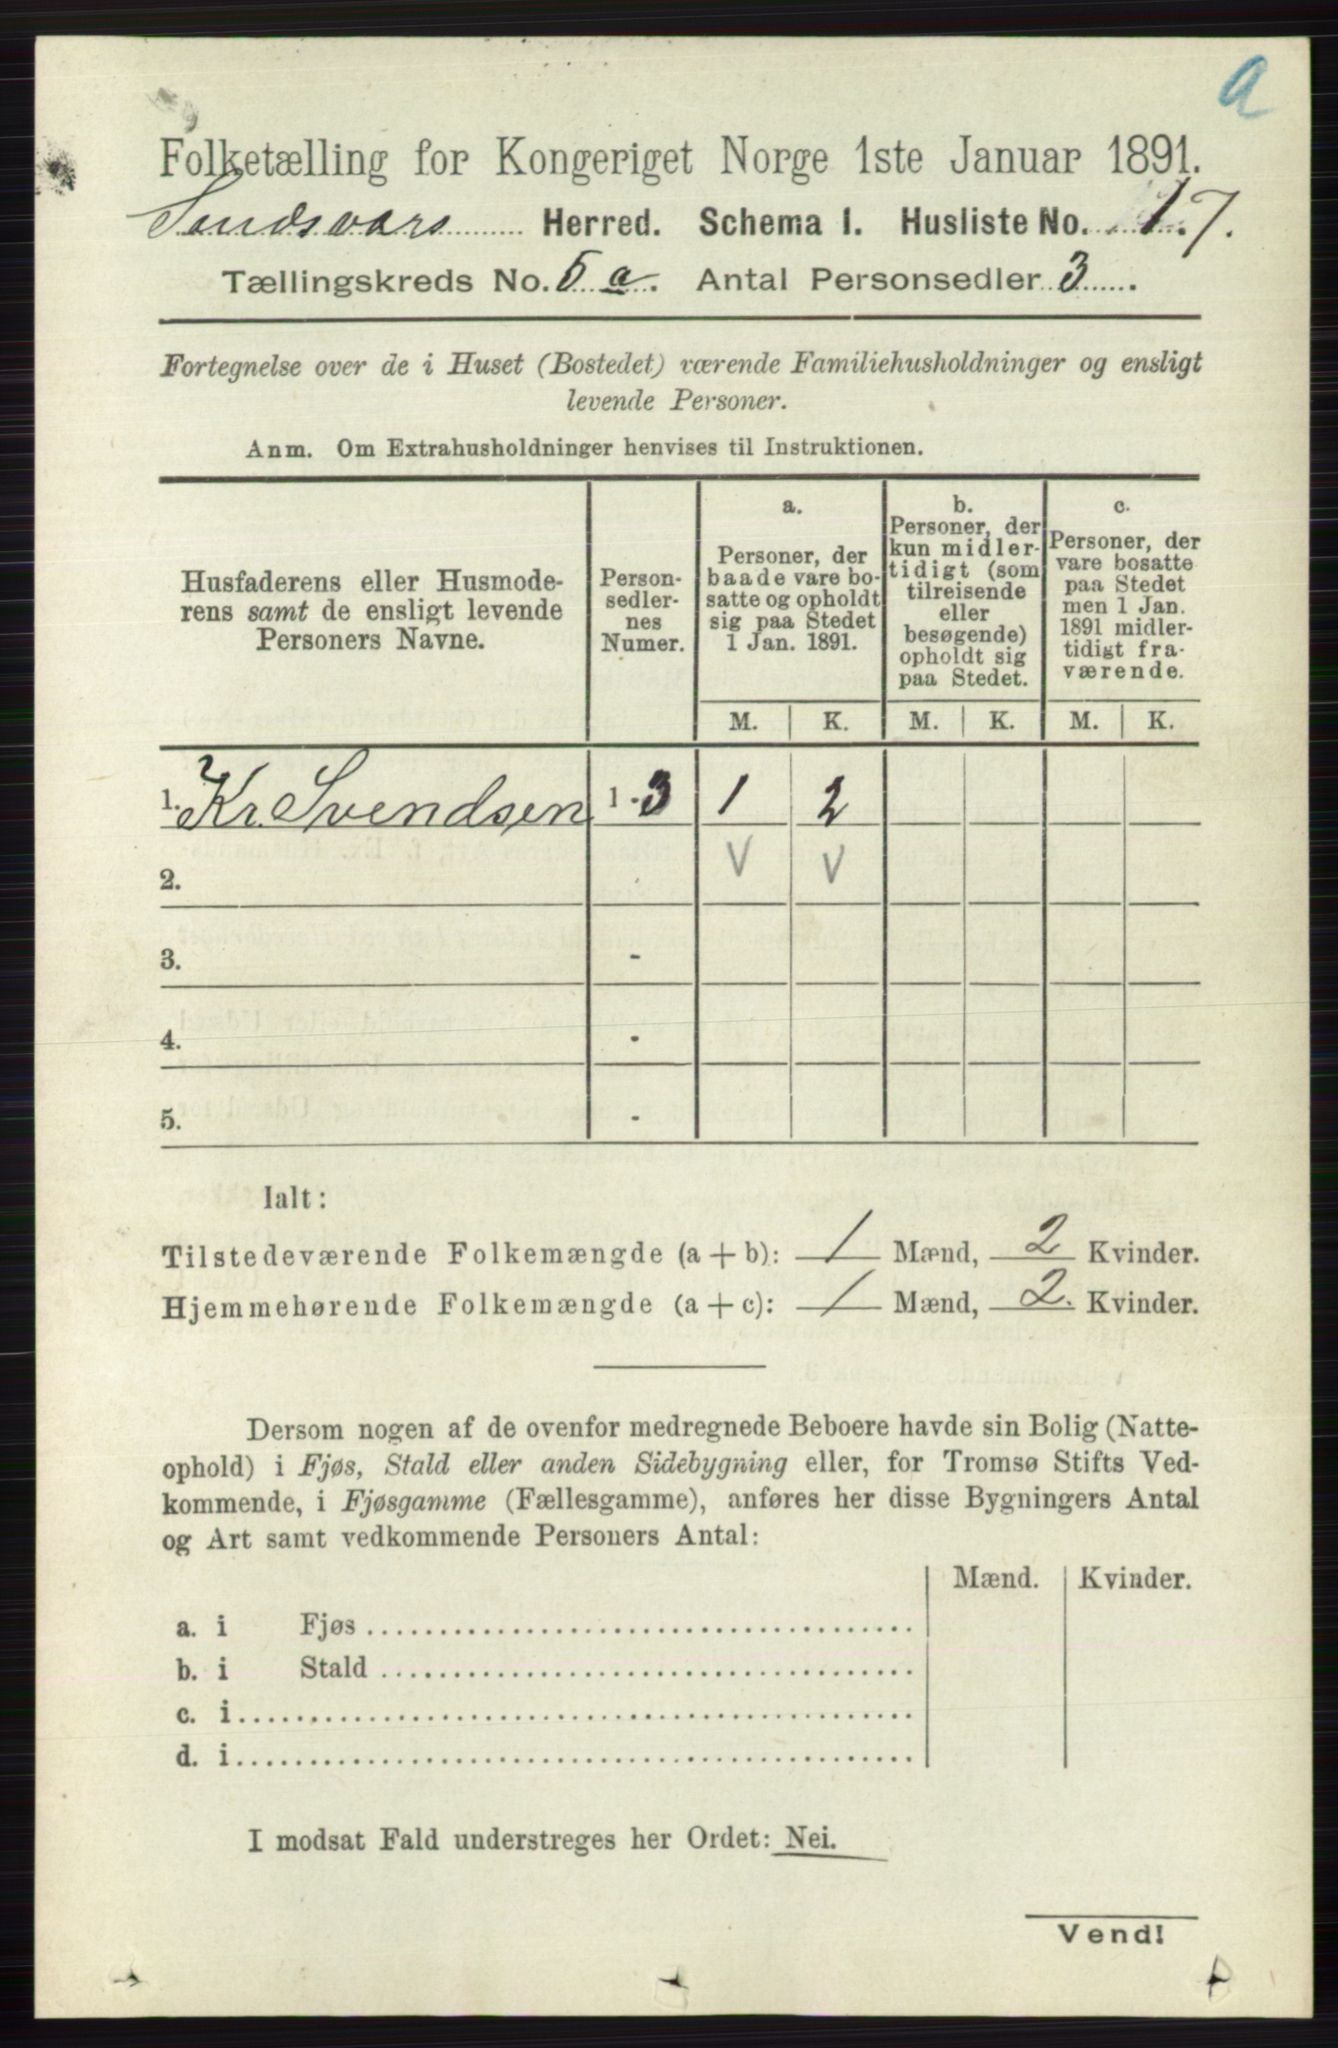 a
Folketælling for Kongeriget Norge 1ste Januar 1891.
Sandsværs Herred. Schema I. Husliste No. 17.
Tællingskreds No. 5 a. Antal Personsedler 3.
Fortegnelse over de i Huset (Bostedet) værende Familiehusholdninger og ensligt
levende Personer.
Anm. Om Extrahusholdninger henvises til Instruktionen.
Husfaderens eller Husmode-
rens samt de ensligt levende
Personers Navne.
Person-
sedler-
nes
Numer.
a.
Personer, der
baade vare bo-
satte og opholdt
sig paa Stedet
1 Jan. 1891.
b.
Personer, der
kun midler-
tidigt (som
tilreisende
eller
besøgende)
opholdt sig
paa Stedet.
c.
Personer, der
vare bosatte
paa Stedet
men 1 Jan.
1891 midler-
tidigt fra-
værende.
M. K. M. K. M. K.
1. Kr. Svendsen 1-3 1 2
2. - V V
3. -
4. -
5. -
Ialt:
Tilstedeværende Folkemængde (a + b): 1 Mænd, 2 Kvinder.
Hjemmehørende Folkemængde (a + c): 1 Mænd, 2. Kvinder.
Dersom nogen af de ovenfor medregnede Beboere havde sin Bolig (Natte-
ophold) i Fjøs, Stald eller anden Sidebygning eller, for Tromsø Stifts Ved-
kommende, i Fjøsgamme (Fællesgamme), anføres her disse Bygningers Antal
og Art samt vedkommende Personers Antal:
Mænd. Kvinder.
a. i Fjøs
b. i Stald
c. i
d. i
I modsat Fald understreges her Ordet: Nei.
Vend!